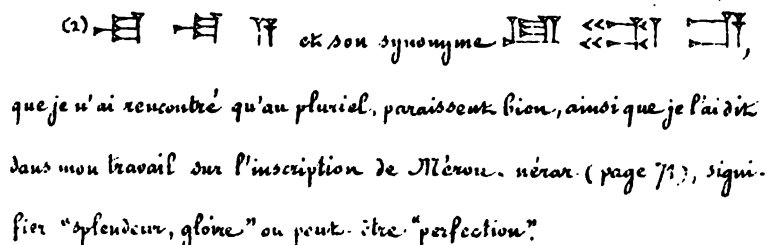 (2) et son synonyme ,
que je n'ai rencontré qu'au pluriel, paraissent bien, ainsi que je l'ai dit
dans mon travail sur l'inscription de Mérou-nérar (page ), signi-
fier "splendeur, gloire" ou peut-être "perfection".